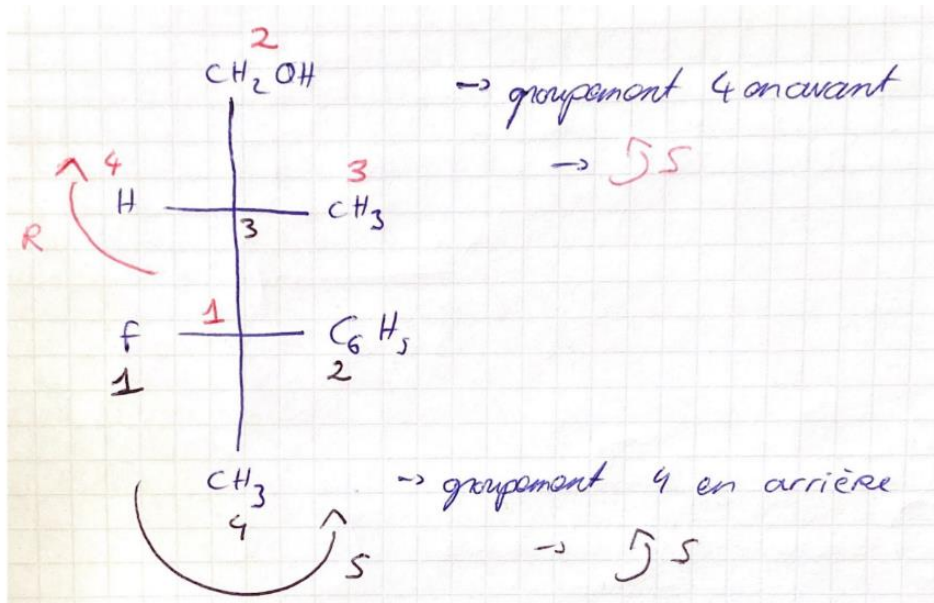 2
CH₂OH → groupement 4 en avant
→ S
4 3
H CH₃
R 3
1
F C₆H₅
1 2
CH₃ → groupement 4 en arrière
4
S → S